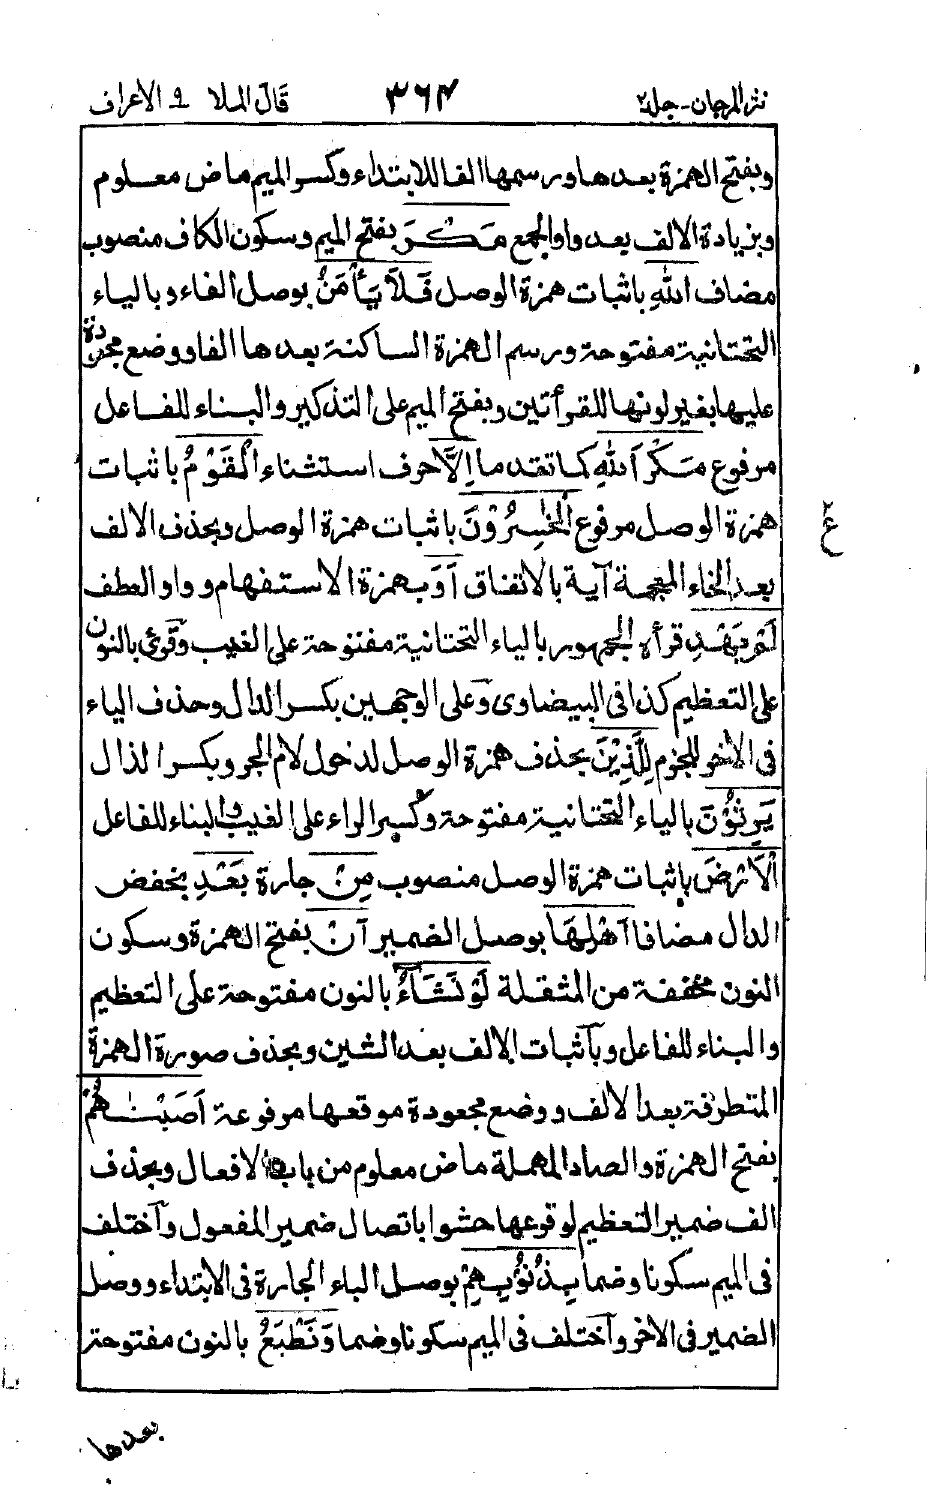 نثر المرجان - جلد ٢ ٣٦٤ قال الملا ٩ الاعراف
وبفتح الهمزة بعدها ورسمها الفا للابتداء وكسر الميم ماض معلوم
وبزيادة الالف بعد واو الجمع مَكْرَ بفتح الميم وسكون الكاف منصوب
مضاف اللهِ باثبات همزة الوصل فَلَا يَأْمَنُ بوصل الفاء وبالياء
التحتانية مفتوحة ورسم الهمزة الساكنة بعدها الفا ووضع مجردة
عليها بغير لونها للقرأتين وبفتح الميم على التذكير والبناء للفاعل
مرفوع مَكْرَ اللهِ كما تقدما اِلَّا حرف استثناء الْقَوْمُ باثبات
همزة الوصل مرفوع الْخٰسِرُوْنَ باثبات همزة الوصل وبحذف الالف
بعد الخاء المعجمة آية بالاتفاق اَوَ بهمزة الاستفهام وواو العطف
لَمْ يَهْدِ قرأه الجمهور بالياء التحتانية مفتوحة على الغيب وقرئ بالنون
على التعظيم كذا فى البيضاوى وعلى الوجهين بكسر الدال وحذف الياء
فى الاخر للجزم لِلَّذِيْنَ بحذف همزة الوصل لدخول لام الجر وبكسر الذال
يَرِثُوْنَ بالياء التحتانية مفتوحة وكسر الراء على الغيب والبناء للفاعل
الْاَرْضَ باثبات همزة الوصل منصوب مِنْ جارة بَعْدِ بخفض
الدال مضافا اَهْلِهَا بوصل الضمير اَنْ بفتح الهمزة وسكون
النون مخففة من المثقلة لَوْ نَشَاءُ بالنون مفتوحة على التعظيم
والبناء للفاعل وباثبات الالف بعد الشين وبحذف صورة الهمزة
المتطرفة بعد الالف ووضع مجعودة موقعها مرفوعة اَصَبْنٰهُمْ
بفتح الهمزة والصاد المهملة ماض معلوم من باب الافعال وبحذف
الف ضمير التعظيم لوقوعها حشوا باتصال ضمير المفعول واختلف
فى الميم سكونا وضما بِذُنُوْبِهِمْ بوصل الباء الجارة فى الابتداء ووصل
الضمير فى الاخر واختلف فى الميم سكونا وضما وَنَطْبَعُ بالنون مفتوحة
بعدها
ع